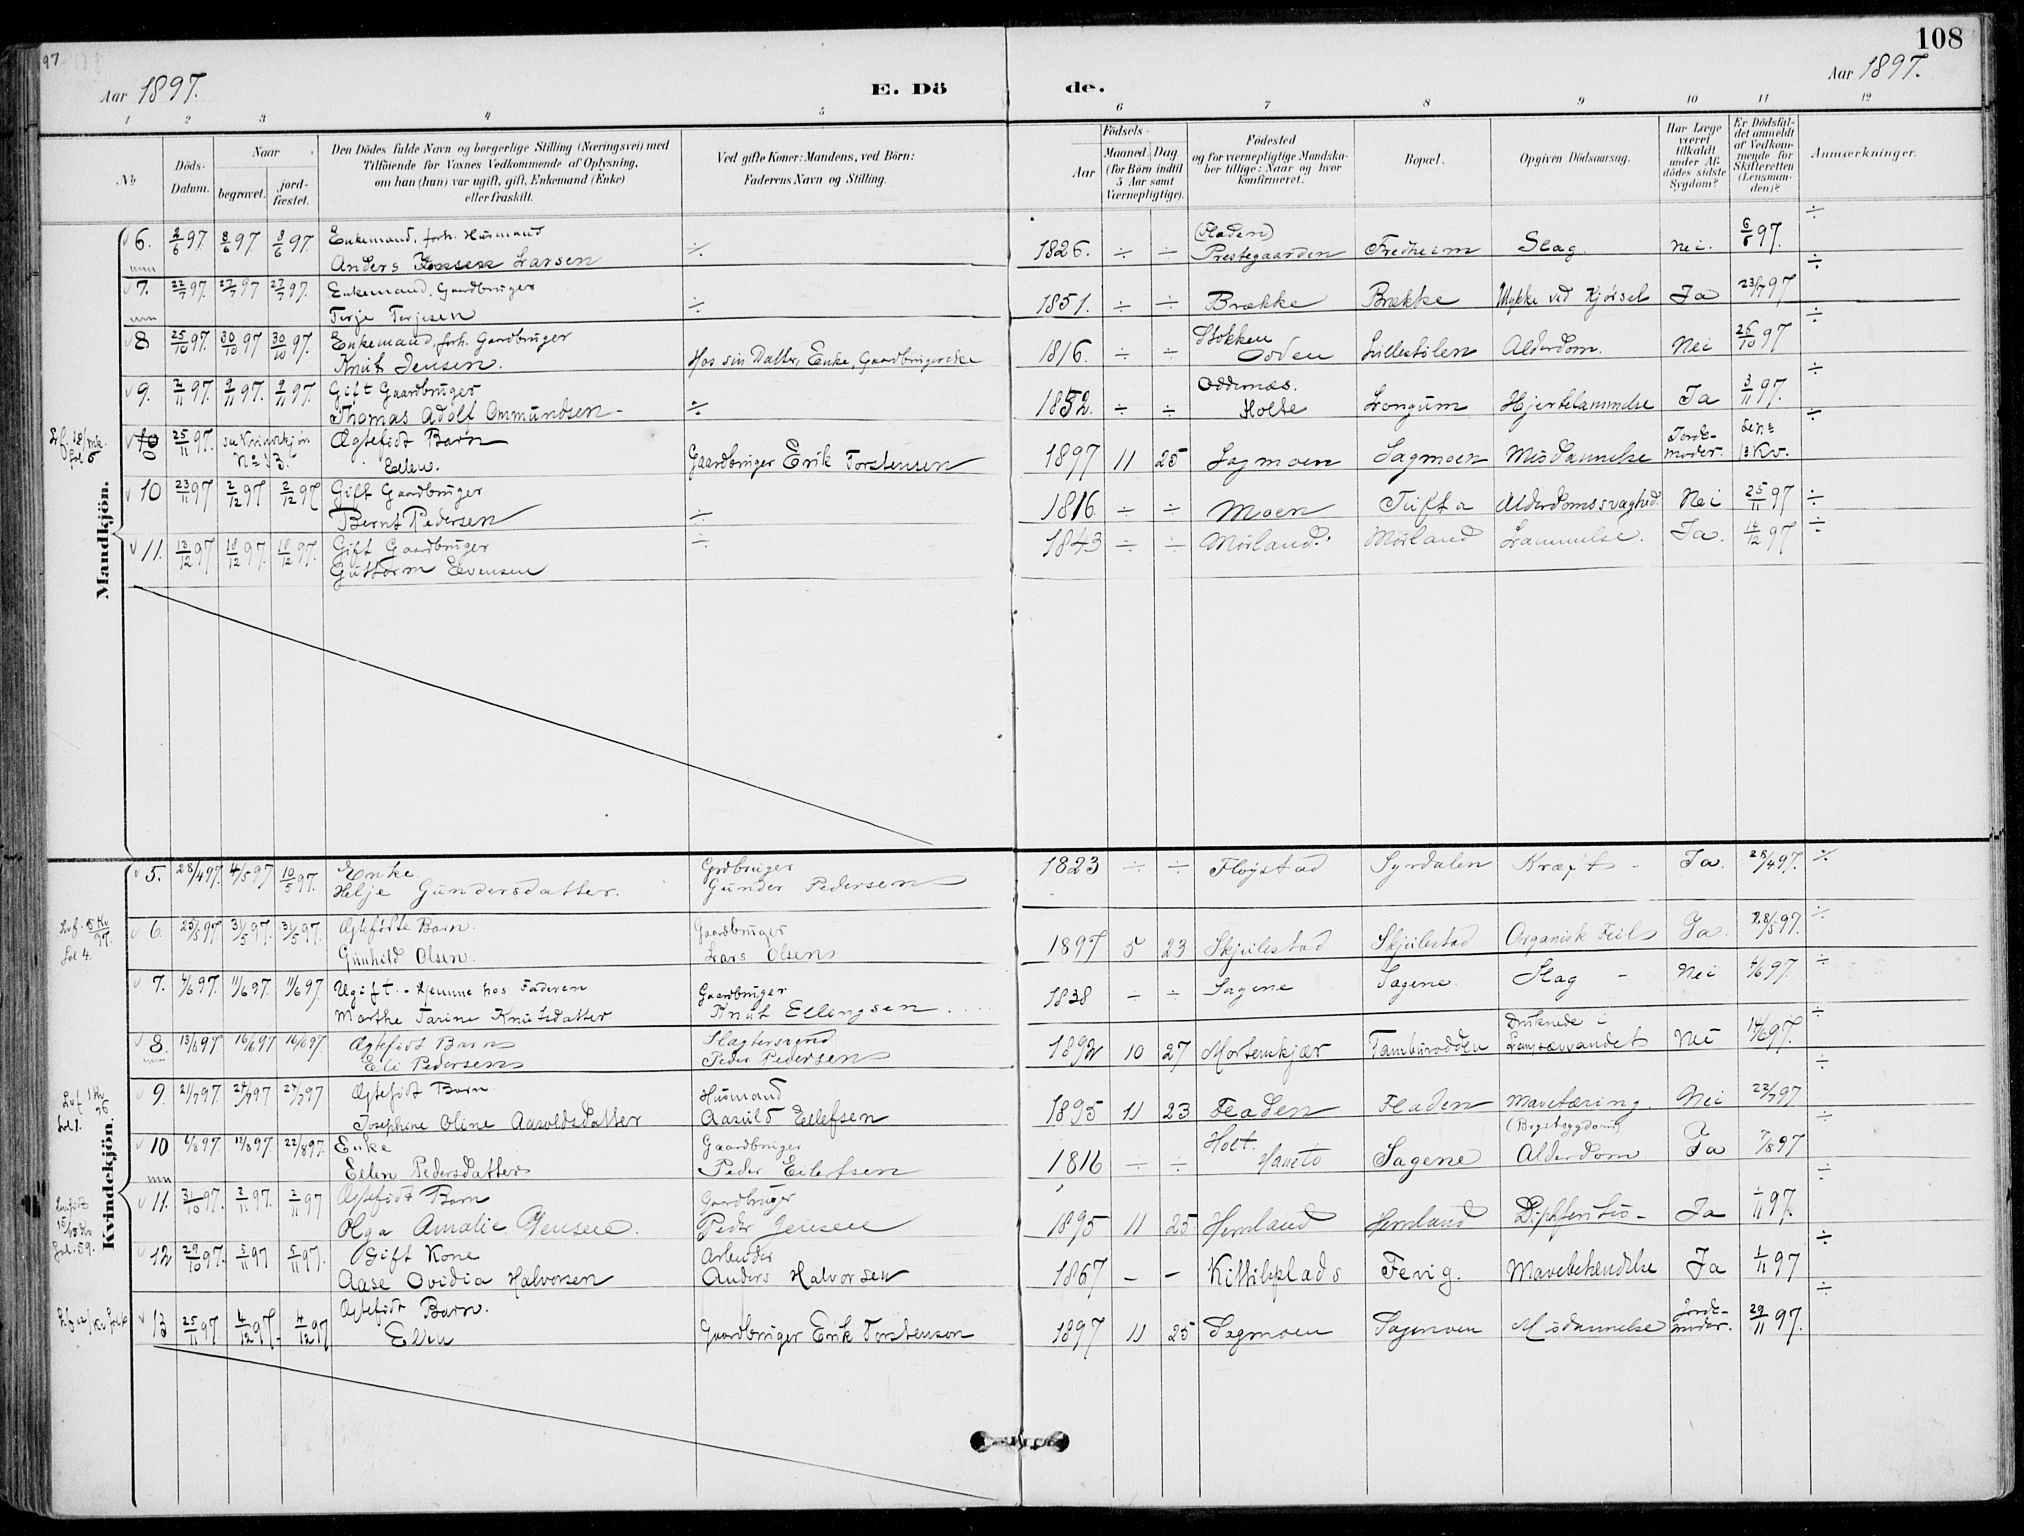 97
108
Aar 1897.
E. Dö
de.
Aar 1897.
1 2 3 4 5 6 7 8 9 10 11 12
No
Döds-
Datum.
Naar
begravet.
jord-
fæstet.
Den Dödes fulde Navn og borgerlige Stilling (Næringsvei) med
Tilföiende for Voxnes Vedkommende af Oplysning,
om han (hun) var ugift, gift, Enkemand (Enke)
eller fraskilt.
Ved gifte Koner: Mandens, ved Börn:
Faderens Navn og Stilling.
Födsels-
Aar
Maaned. Dag
(for Börn indtil
5 Aar samt
Værnepligtige).
Födested
og for værnepligtige Mandska-
ber tillige: Naar og hvor
konfirmeret.
Bopæl.
Opgiven Dödsaarsag.
Har Læge
været
tilkaldt
under Af-
dödes sidste
Sygdom?
Er Dödsfal-
det anmeldt
af Vedkom-
mende for
Skifteretten
(Lensman-
den)?
Anmærkninger.
Mandkjön.
6. 2/6 97. 8/6 97 8/6 97. Enkemand, forh. Husmand ÷ (Fladen) 6/6 97. ÷
Anders Larsen 1826. ÷ ÷ Prestegaarden Fredheim Slag Nei.
7. 22/7 97. 27/7 97 27/7 97. Enkemand, Gaardbruger ÷ 23/7 97 ÷
Terje Terjesen 1851. ÷ ÷ Brække Brække Ulykke ved Kjørsel Ja
8 25/10 97. 30/10 97 30/10 97. Enkemand, forh. Gaardbruger Stokken 26/10 97 ÷
Knut Jensen. Hos sin Datter, Enke, Gaardbrugerske 1816. ÷ ÷ Ooden Lillestølen Alderdom. Nei
9. 2/11 97. 9/11 97. 9/11 97. Gift Gaardbruger Oddernæs. 3/11 97. ÷
Thomas Adolf Ommundsen ÷ 1852. ÷ ÷ Holte Longum Hjertelammelse Ja
10 25/11 97. se Kvindekjøn Ægtefødt Barn Jorde- ÷
No 13. Ellen. Gaardbruger Erik Torstensen 1897 11 25 Sagmoen Sagmoen Misdannelse moder. 13 Kv.
10 23/11 97 2/12 97 2/12 97 Gift Gaardbruger 25/11 97 ÷
Bernt Pedersen ÷ 1816 ÷ ÷ Moen Tufta Alderdomssvaghed. Nei
11. 13/12 97 18/12 97. 18/12 97. Gift Gaardbruger ÷ 1843 ÷ ÷ Mørland. Mørland Lammelse. Ja. 14/12 97 ÷
Guttorm Evensen
Kvindekjön.
5. 28/4 97. 4/5 97 10/5 97. Enke Grdbruger 1823 ÷ ÷ Fløystad Syrdalen Kræft Ja. 28/4 97. ÷
Helje Gundersdatter. Gunder Pedersen
6. 23/5 97 31/5 97. 31/5 97. Ægtefødte Barn. Gaardbruger 28/5 97. ÷
Gunhild Olsen. Lars Olsen 1897 5 23 Skjulestad Skjulestad Organisk Feil Ja.
7. 4/6 97. 11/6 97. 11/6 97 Ugift. - Hjemme hos Faderen Gaardbruger Slag Nei 4/6 97. ÷
Marthe Tarine Knutsdatter Knut Ellingsen 1838 ÷ ÷ Sagene Sagene.
8. 13/6 97 16/6 97 16/6 97 Ægtefødt Barn Slagtersvend Druknede i 14/6 97. ÷
Eli Pedersen Peder Pedersen 1892 10 27 Mortenskjær Tamburodden Langsævandet Nei
9. 21/7 97. 24/7 97 24/7 97 Ægtefødt Barn. Husmand 22/7 97 ÷
Josephine Oline Aasoldsdatter Aasuld Ellefsen 1895 11 23 Fladen Fladen Mavetæring. Nei
(Brystsygdom)
10 6/8 97. 12/8 97. 22/8 97. Enke Gaardbruger Holt. 7/8 97 ÷
Ellen Pedersdatter Peder Eilefsen 1816 ÷ ÷ Haneto Sagene Alderdom Ja
11. 31/10 97. 2/11 97. 2/11 97 Ægtefødt Barn Gaardbruger ÷
Olga Amalie Jensen. Peder Jensen 1895 11 25. Hemland Hemland Diphteritis - Ja 1/11 97.
12 29/10 97. 5/11 97 5/11 97. Gift Kone Arbeider ÷
Aase Ovidia Halvorsen Anders Halvorsen 1867 - - Kittilsplads Fevig. Mavebetændelse Ja 1/11 97
13 25/11 97. 4/12 97. 4/12 97 Ægtefødt Barn. Jorde- 29/11 97. ÷
Ellen Gaardbruger Erik Torstenson 1897 11 25 Sagmoen Sagmoen Misdannelse moder.